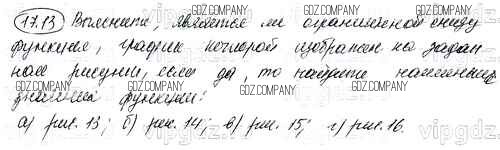 17.13 Выяснить, является ли ограниченной снизу
функция, график которой изображен на задан-
ном рисунке, если да, то найдите наименьшее
значение функции:
а) рис. 13; б) рис. 14; в) рис. 15; г) рис. 16.
GDZ.COMPANY
GDZ.COMPANY
GDZ.COMPANY
GDZ.COMPANY
GDZ.COMPANY
GDZ.COMPANY
vipgdz